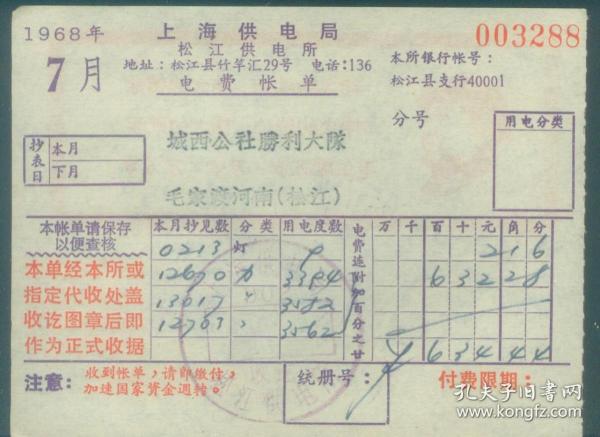 1968年
7月
上海供电局
松江供电所
地址：松江县竹竿汇29号 电话：136
电费帐单
003288
本所银行帐号：
松江县支行40001
分号
用电分类
抄表日
本月
下月
城西公社勝利大隊
毛家渡河南(松江)
本帐单请保存
以便查核
本月抄见数 分类 用电度数
电费连附加百分之廿
万 千 百 十 元 角 分
0213 灯 9 2 1 6
12690 力 3394 6 3 2 2 8
13017 〃 3582
12703 〃 3562
¥ 6 3 4 4 4
本单经本所或
指定代收处盖
收讫图章后即
作为正式收据
注意：
收到帐单，请即缴付，
加速国家资金週转。
统册号：
付费限期：
孔夫子旧书网
www.kongfz.com